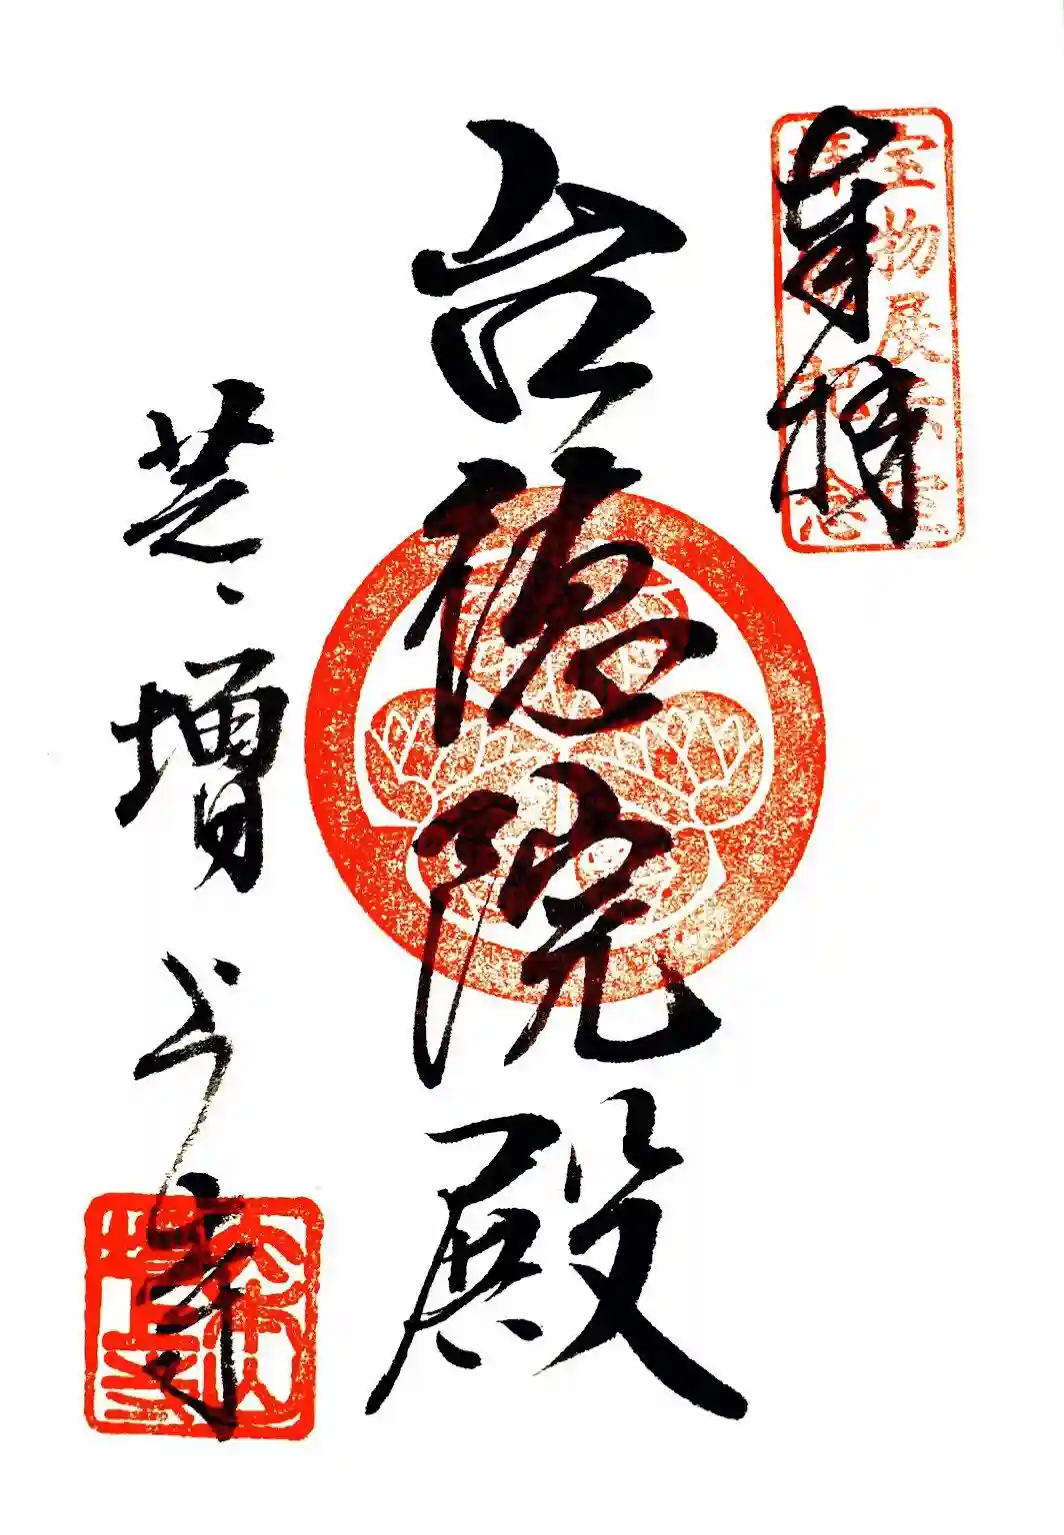 奉拝
宝物展示室
拝観記念
台徳院殿
芝 増上寺